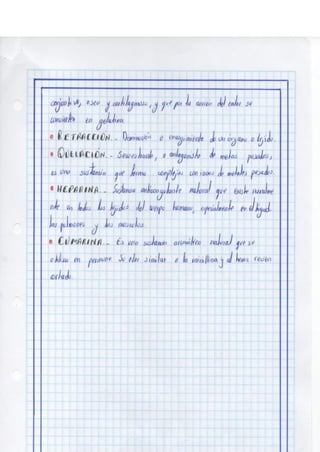 conjuntivo, óseo y cartilaginoso, y que por la acción del calor se
convierte en gelatina.
• RETRACCIÓN.- Disminución o encogimiento de un órgano o tejido.
• QUELACIÓN.- Secuestrante, o antagonista de metales pesados,
es una sustancia que forma complejos con iones de metales pesados.
• HEPARINA.- Sustancia anticoagulante natural que existe normalm
ente en todos los tejidos del cuerpo humano, especialmente en el hígado
los pulmones y los músculos.
• CUMARINA.- Es una sustancia aromática natural que se
utiliza en perfumes. Su olor similar a la vainillina y al heno recién
cortado.